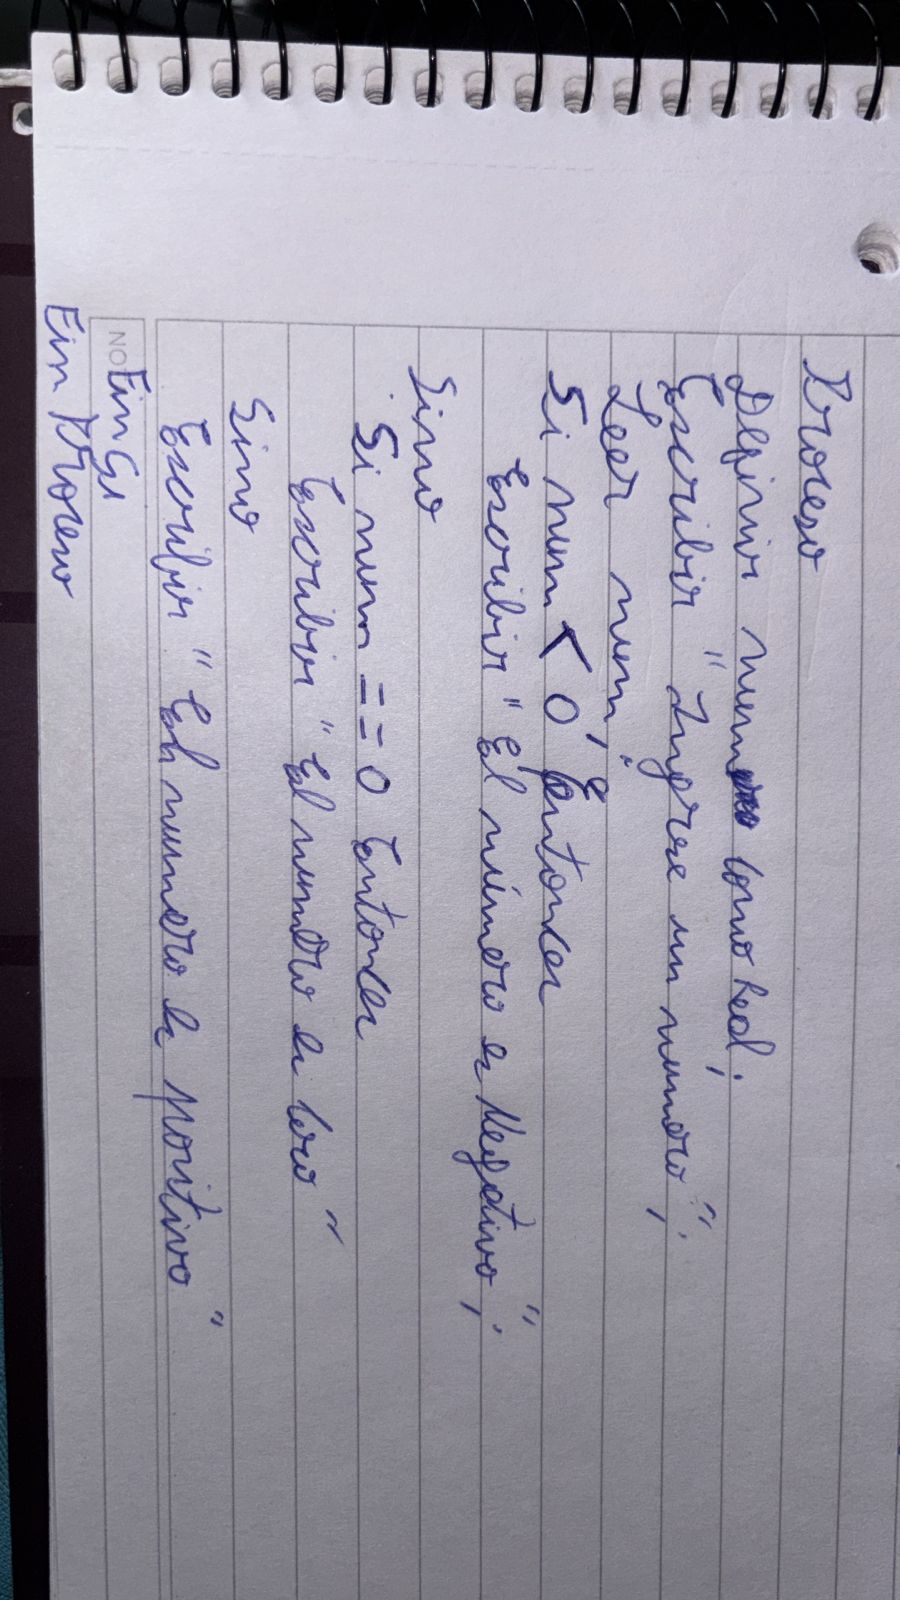 Proceso
Definir num Como Real;
Escribir "Ingrese un numero";
Leer num;
Si num < 0 Entonces
Escribir "El número es Negativo";
Sino
Si num == 0 Entonces
Escribir "El numero es Cero"
Sino
Escribir "El numero es positivo"
Fin Si
NO
Fin Proceso